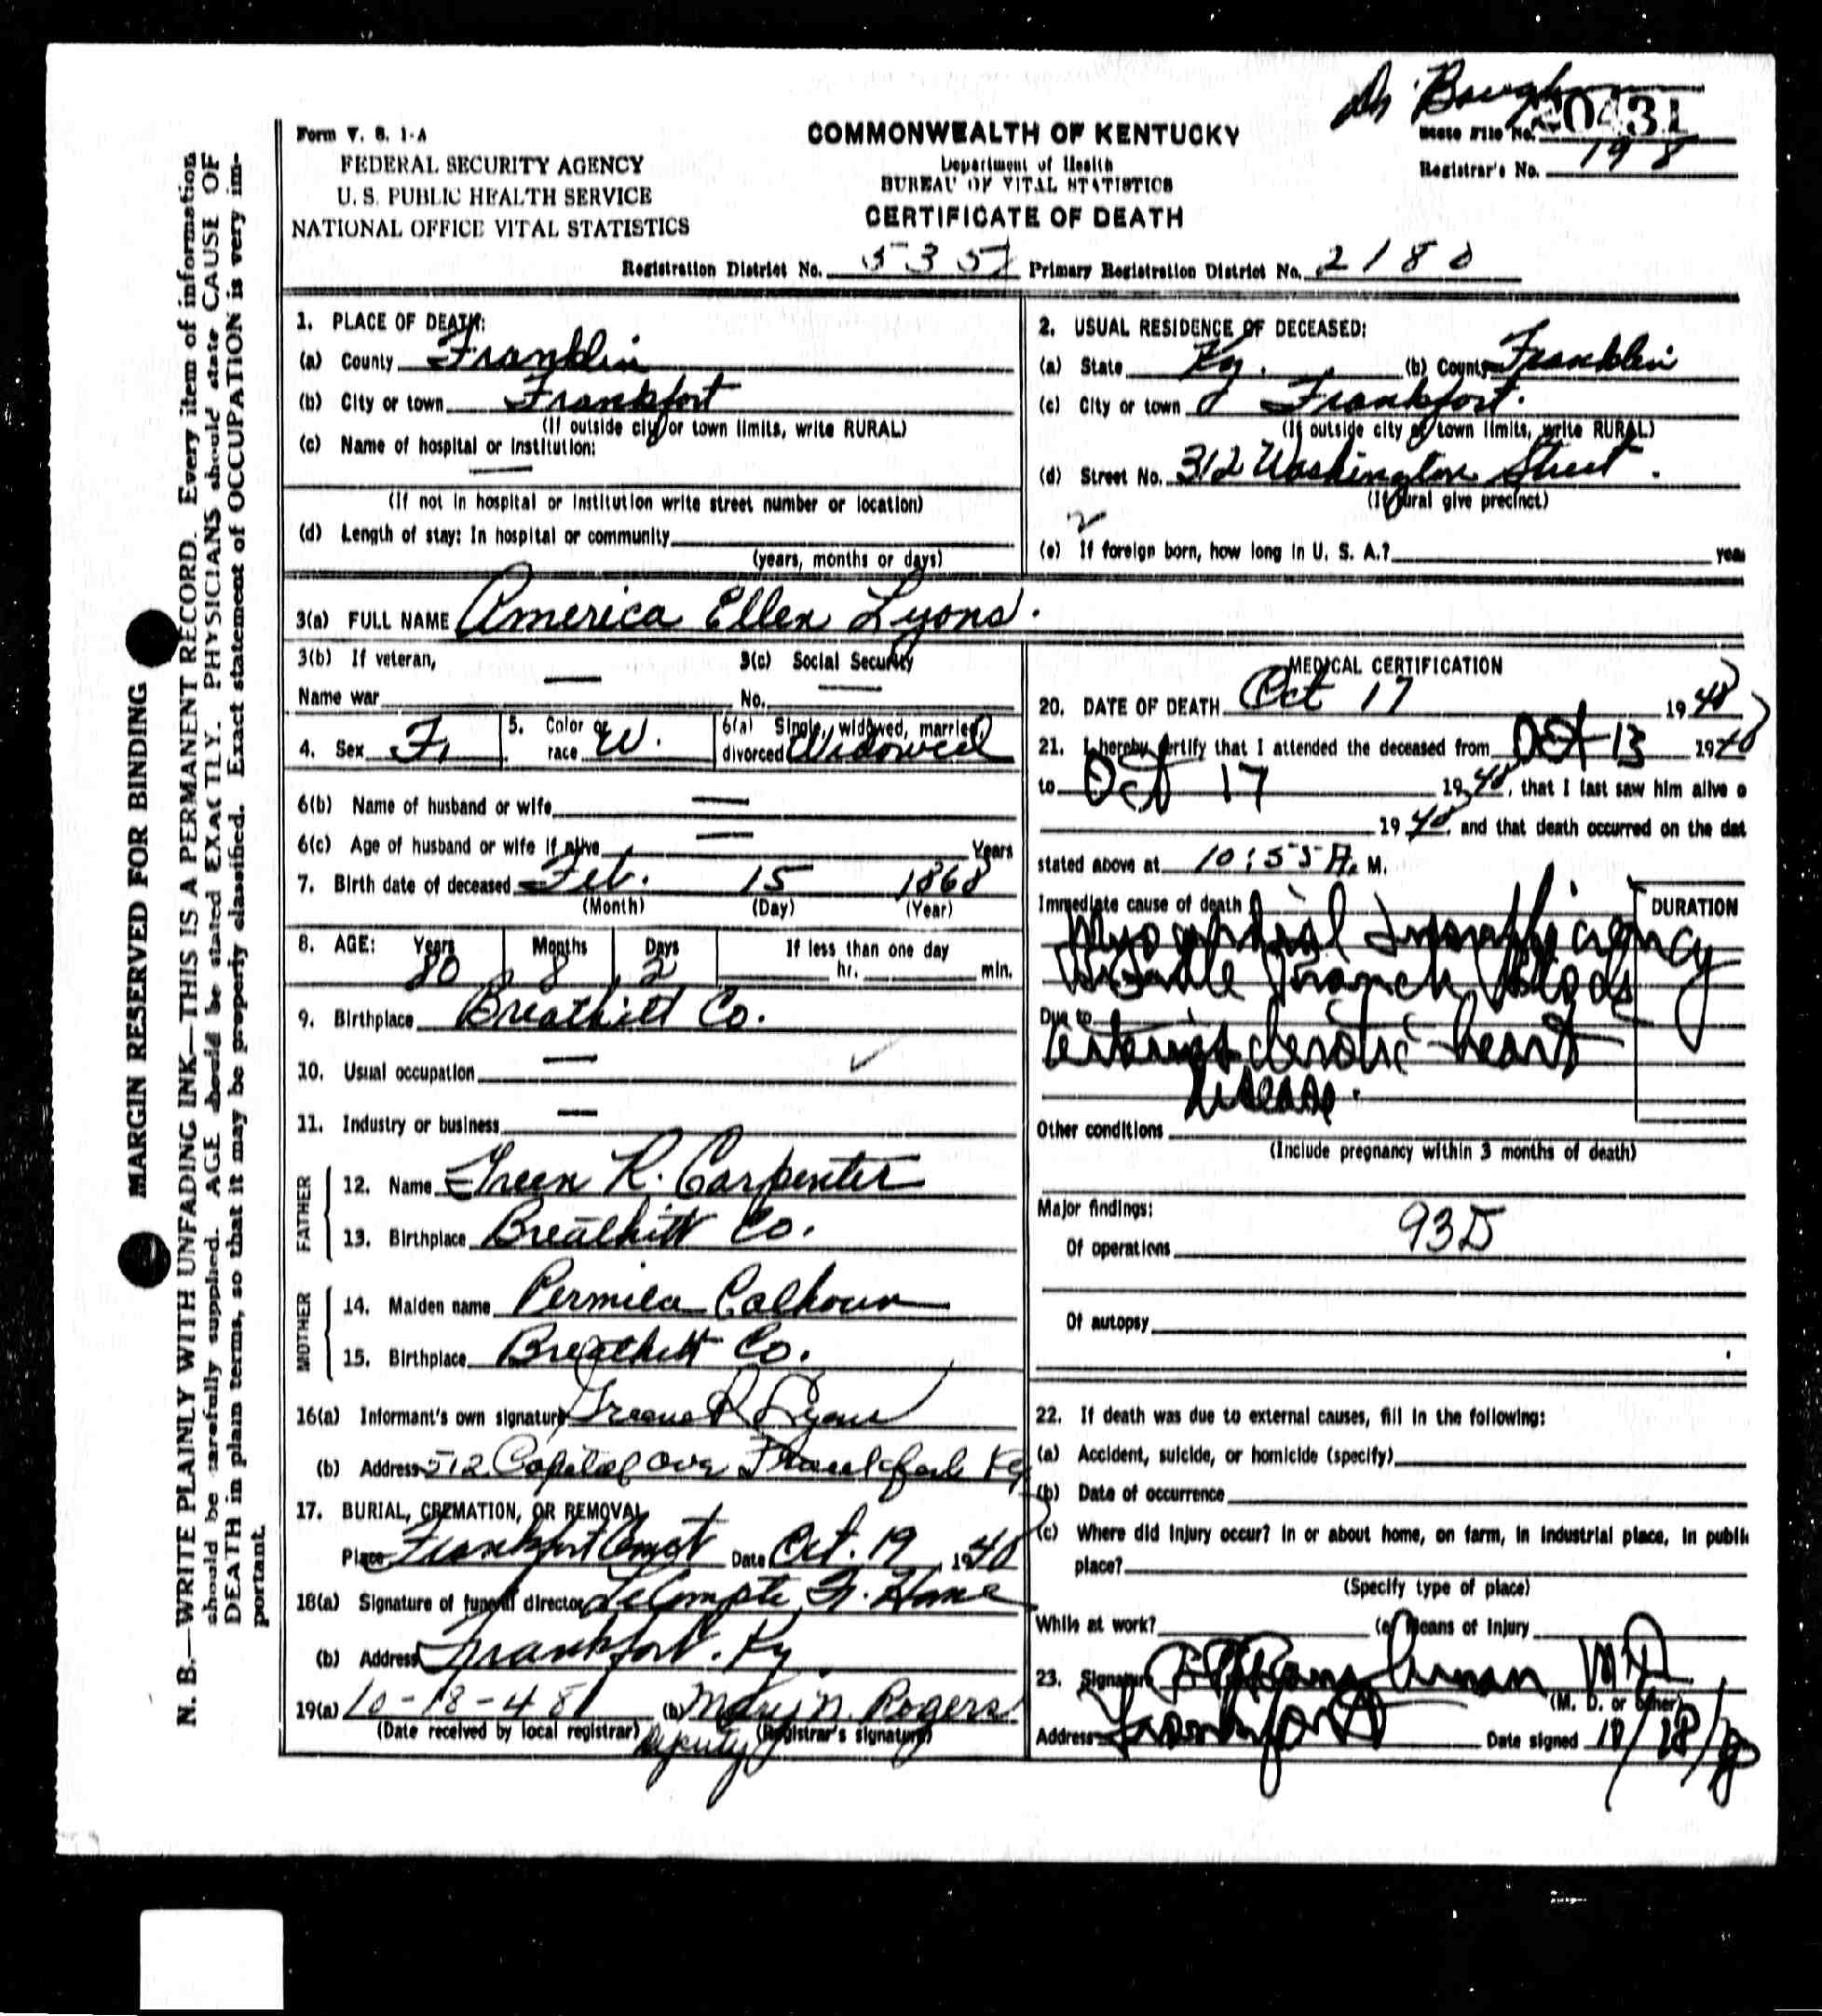 Dr Baughman
Form V. S. 1-A
FEDERAL SECURITY AGENCY
U. S. PUBLIC HEALTH SERVICE
NATIONAL OFFICE VITAL STATISTICS
COMMONWEALTH OF KENTUCKY
Department of Health
BUREAU OF VITAL STATISTICS
CERTIFICATE OF DEATH
State File No. 20431
Registrar's No. 198
Registration District No. 5357 Primary Registration District No. 2180
MARGIN RESERVED FOR BINDING
N. B.—WRITE PLAINLY WITH UNFADING INK—THIS IS A PERMANENT RECORD. Every item of information
should be carefully supplied. AGE should be stated EXACTLY. PHYSICIANS should state CAUSE OF
DEATH in plain terms, so that it may be properly classified. Exact statement of OCCUPATION is very im-
portant.
1. PLACE OF DEATH:
(a) County Franklin
(b) City or town Frankfort
(If outside city or town limits, write RURAL)
(c) Name of hospital or institution:
—
(If not in hospital or institution write street number or location)
(d) Length of stay: In hospital or community
(years, months or days)
2. USUAL RESIDENCE OF DECEASED:
(a) State Ky. (b) County Franklin
(c) City or town Frankfort.
(If outside city or town limits, write RURAL)
(d) Street No. 312 Washington Street.
(If rural give precinct)
(e) If foreign born, how long in U. S. A.? yea
3(a) FULL NAME America Ellen Lyons.
3(b) If veteran, 3(c) Social Security
Name war — No. —
4. Sex F. 5. Color or race W. 6(a) Single, widowed, married, divorced Widowed
6(b) Name of husband or wife —
6(c) Age of husband or wife if alive — Years
7. Birth date of deceased Feb. 15 1868
(Month) (Day) (Year)
8. AGE: Years Months Days If less than one day
80 8 2 hr. min.
9. Birthplace Breathitt Co.
10. Usual occupation —
11. Industry or business —
FATHER
12. Name Green R. Carpenter
13. Birthplace Breathitt Co.
MOTHER
14. Maiden name Permica Calhoun
15. Birthplace Breathitt Co.
16(a) Informant's own signature Greene R Lyons
(b) Address 512 Capital Ave Frankfort Ky
17. BURIAL, CREMATION, OR REMOVAL
Place Frankfort Cemet Date Oct. 19, 1948
18(a) Signature of funeral director LeCompte F. Home
(b) Address Frankfort. Ky
19(a) 10-18-48 (b) Mary N. Rogers
(Date received by local registrar) Deputy (Registrar's signature)
MEDICAL CERTIFICATION
20. DATE OF DEATH Oct 17 1948
21. I hereby certify that I attended the deceased from Oct 13 1948
to Oct 17 1948, that I last saw him alive o
1948, and that death occurred on the dat
stated above at 10:55 A. M.
Immediate cause of death DURATION
Myocardial Insufficiency
Bundle Branch Block
Due to
arteriosclerotic heart
disease.
Other conditions
(Include pregnancy within 3 months of death)
Major findings:
Of operations 93D
Of autopsy
22. If death was due to external causes, fill in the following:
(a) Accident, suicide, or homicide (specify)
(b) Date of occurrence
(c) Where did injury occur? In or about home, on farm, in industrial place, in public
place?
(Specify type of place)
While at work? (e) Means of Injury
23. Signature Baughman MD
(M. D. or other)
Address Frankfort Date signed 10/18/48